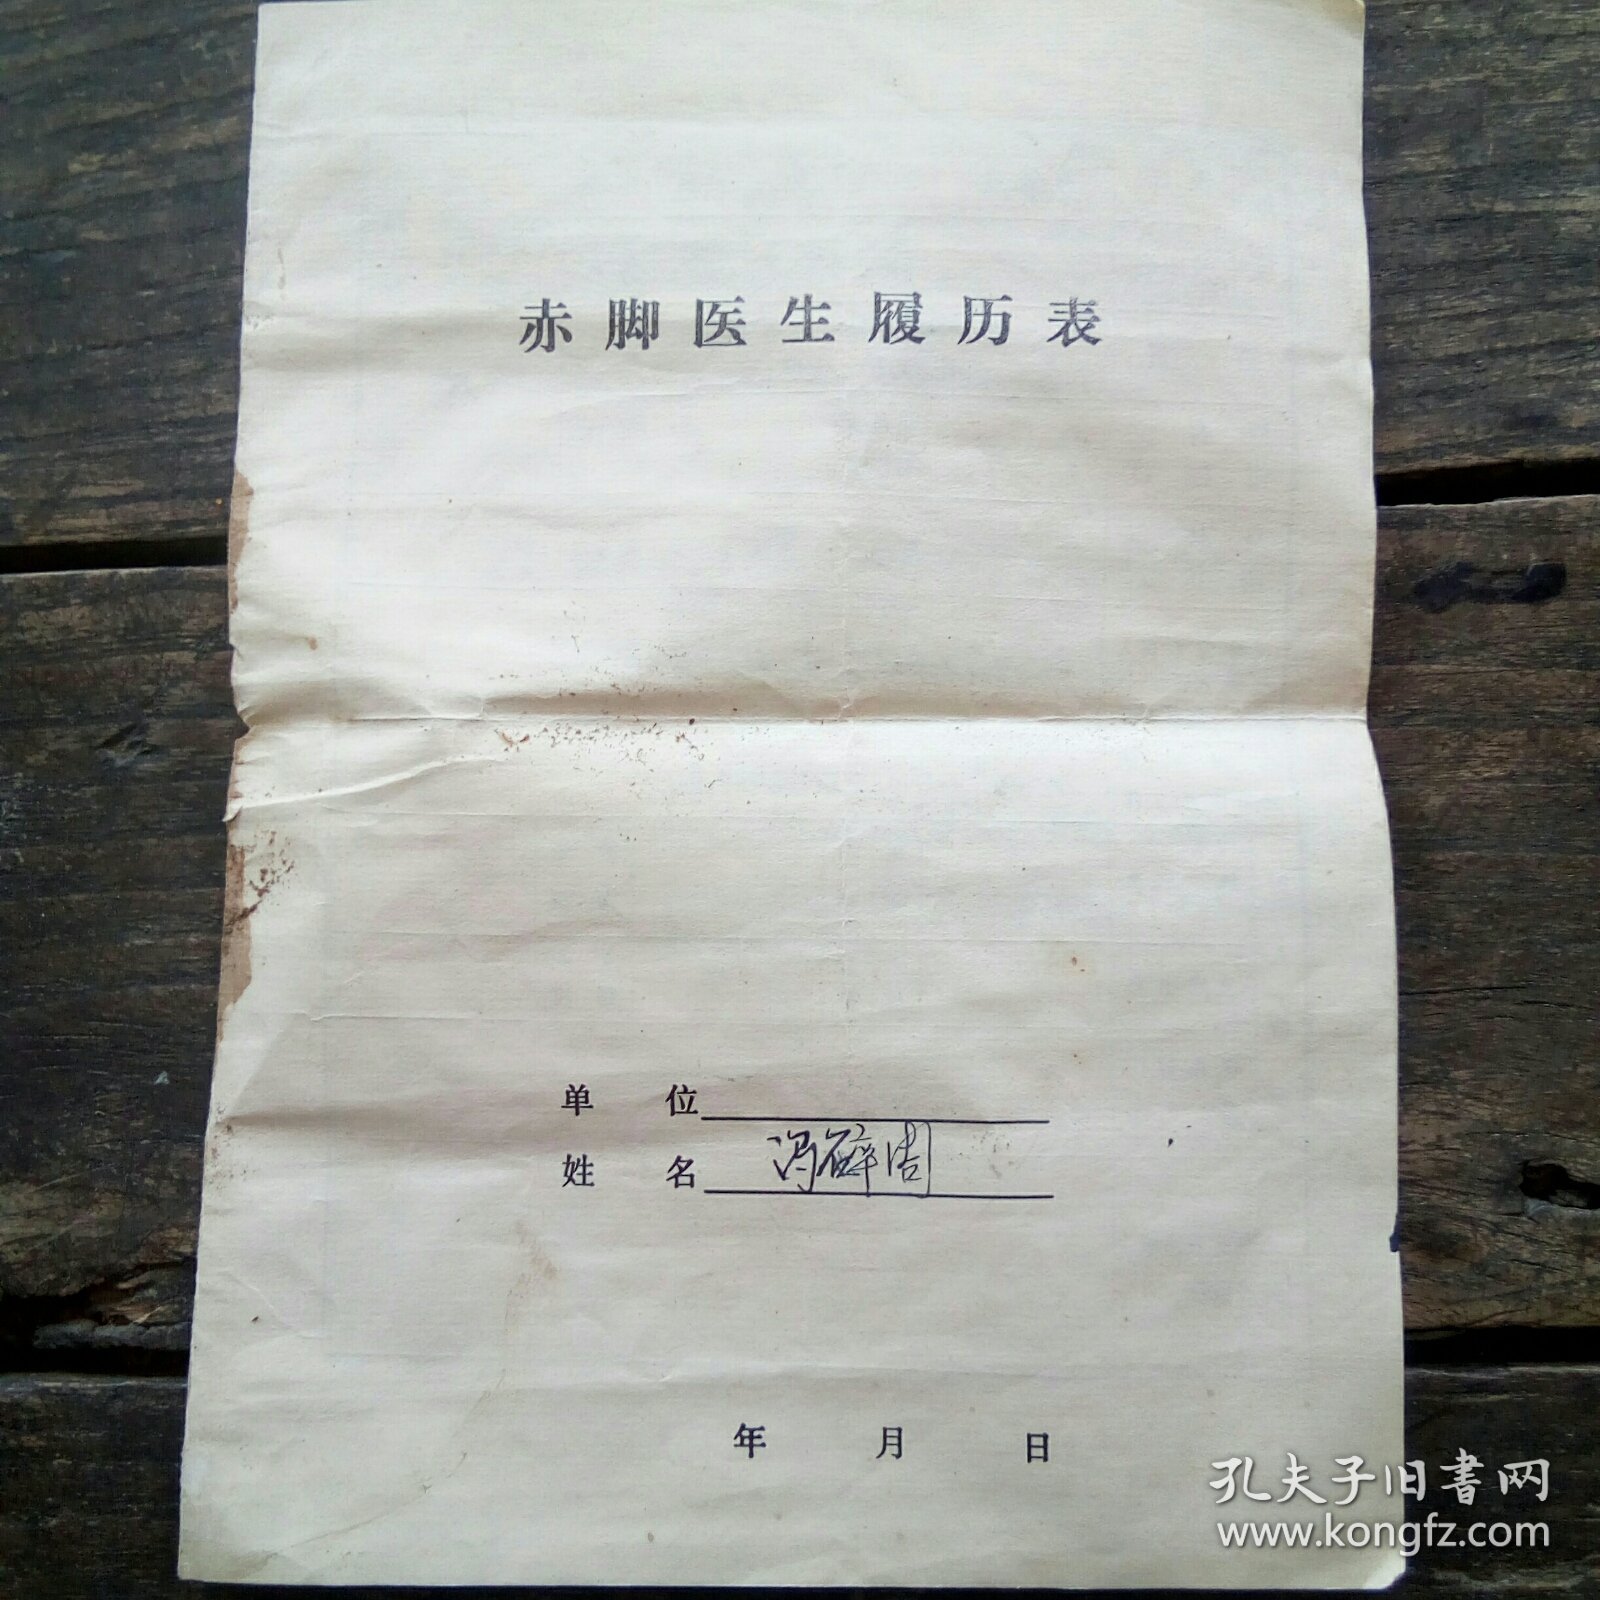 赤脚医生履历表
单 位
姓 名 冯辉周
年 月 日
孔夫子旧书网
www.kongfz.com